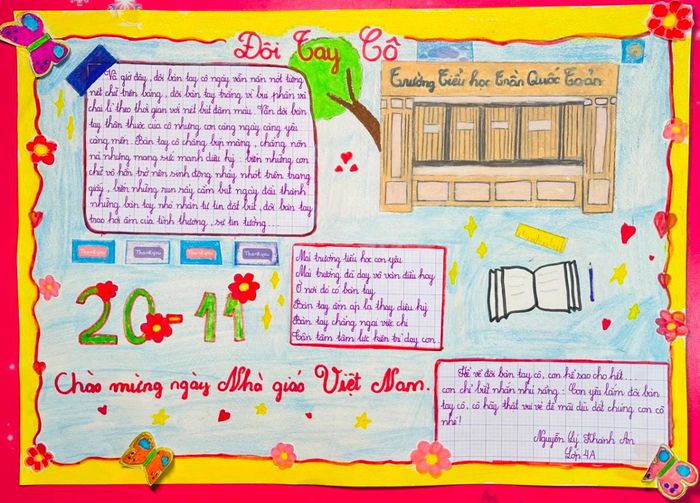 Đôi Tay Cô
Và giờ đây, đôi bàn tay cô ngày vẫn nắn nót từng
nét chữ trên bảng, đôi bàn tay trắng vì bụi phấn và
chai lì theo thời gian với nét bút đậm màu. Vẫn đôi bàn
tay thân thuộc của cô nhưng con càng ngày càng yêu
càng mến. Bàn tay cô chẳng búp măng, chẳng nõn
nà nhưng mang sức mạnh diệu kỳ: biến những con
chữ vô hồn trở nên sinh động nhảy nhót trên trang
giấy, biến những run rẩy cầm bút ngày đầu thành
những bàn tay nhỏ nhắn tự tin đặt bút, đôi bàn tay
trao hơi ấm của tình thương, sự tin tưởng...
Trường Tiểu học Trần Quốc Toản
Thank you
Thank you
Thank you
Thank you
20-11
Mái trường tiểu học con yêu
Mái trường đã dạy vô vàn điều hay
Ở nơi đó có bàn tay
Bàn tay ấm áp lạ thay diệu kỳ
Bàn tay chẳng ngại việc chi
Cần tâm tâm lức kiên trì dạy con.
Chào mừng ngày Nhà giáo Việt Nam.
Kể về đôi bàn tay cô, con kể sao cho hết...
con chỉ biết nhắn nhủ rằng: Con yêu lắm đôi bàn
tay cô, cô hãy thật vui vẻ để mãi dìu dắt chúng con cô
nhé!
Nguyễn Lý Khánh An
Lớp 4A